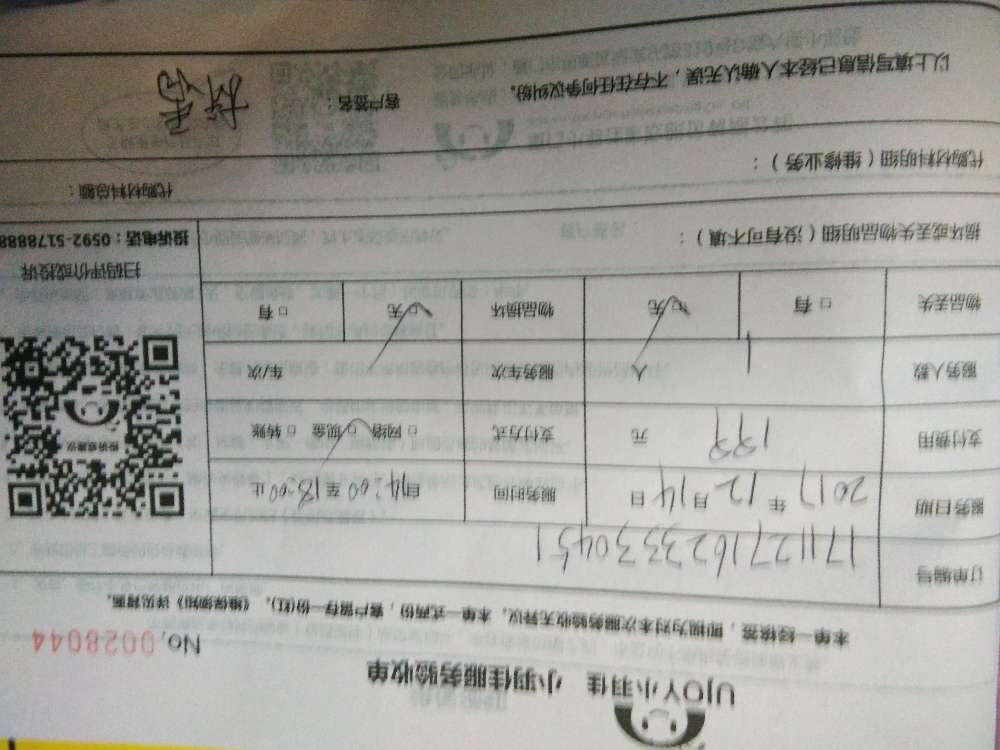 UJOY小羽佳 小羽佳服务验收单
No. 0028044
本单一经核签，即视为对本次服务验收无异议。本单一式两份，客户留存一份(红)。《维保须知》详见背面。
订单编号 17112716233330451
服务日期 2017年12月14日 服务时间 自14:00至18:00止
支付费用 199 元 支付方式 □网络 □现金 □转账
服务人数 1 人 服务车次 车/次
物品丢失 □有 □无 物品损坏 □无 □有
投诉或建议
扫码评价或投诉
损坏或丢失物品明细（没有可不填）：
投诉电话：0592-5178888
代购材料明细（维修业务）：
代购材料总额：
以上填写信息已经本人确认无误，不存在任何争议纠纷。
客户签名：